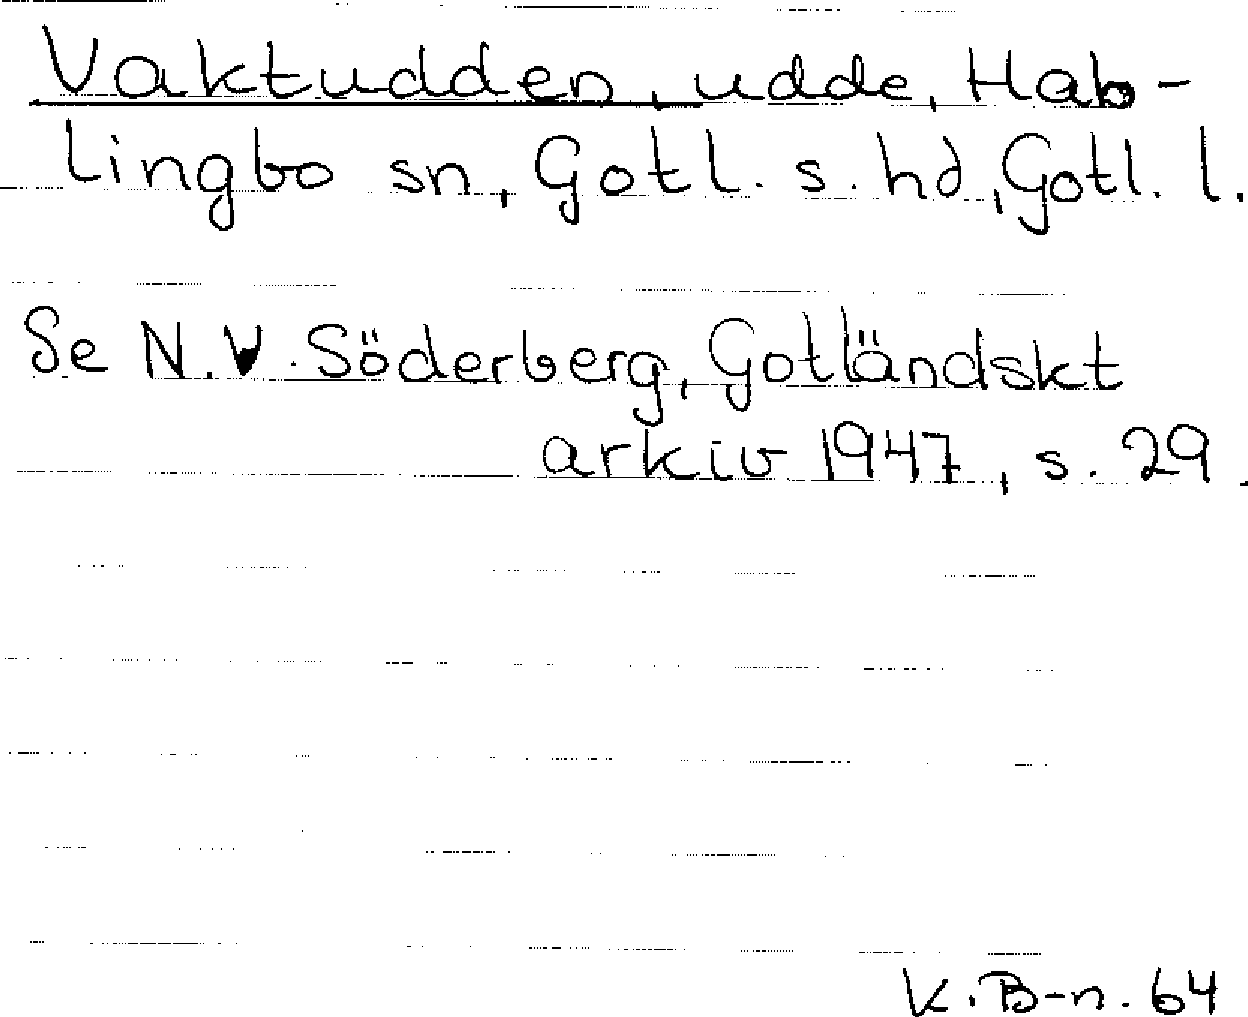 Vaktudden, udde, Hab-
lingbo sn, Gotl. s. hd, Gotl. l.
Se N.V. Söderberg, Gotländskt
arkiv 1947, s. 29.
K.B-n. 64